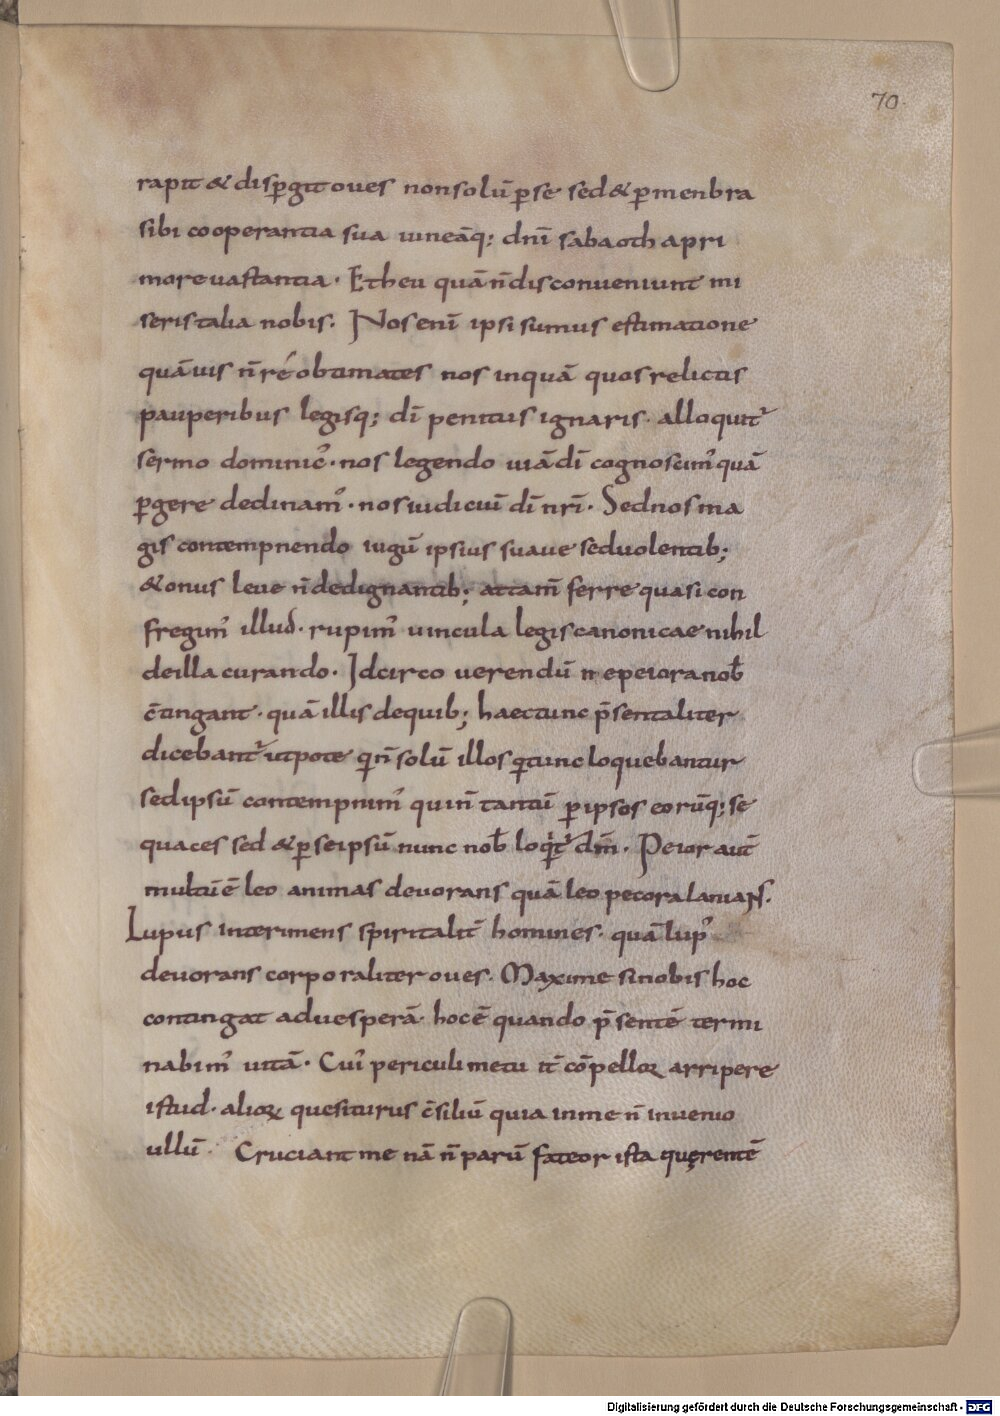 70
rapit & disp̱git oues non solū p̱ se sed & p̱ menbra
sibi cooperantia sua uineāq; dnī sabaoth apri
more uastantia. Et heu quā n̄ disconueniunt mi
seris talia nobis. Nos enī ipsi sumus estimatione
quāuis n̄ ré obtimates nos inquā quos relictis
pauperibus legisq; dī penitus ignaris. alloquit᷒
sermo dominic᷒. nos legendo uiā dī cognoscim᷒ quā
p̱gere dedinam᷒. nos iudiciū dī nrī. Sed nos ma
gis contempnendo iugū ipsius suaue sed uolentib;
& onus leue n̄ dedignantib; attam̄ ferre quasi con
fregim᷒ illud. rupim᷒ uincula legis canonicae nihil
de illa curando. Idcirco uerendū ne peiora nob̄
c̄tingant. quā illis de quib; haec tunc p̄sentaliter
dicebant᷒ utpote qui n̄ solū illos q̄ tunc loquebantur
sed ipsū contempnim᷒ qui n̄ tantū p̱ ipsos eorūq; se
quaces sed & p̱ se ipsū nunc nob̄ loq̇t᷒ dm̄. Peior aut̄
multū ē leo animas deuorans quā leo pecora lanians.
Lupus interimens spiritalit̄ homines. quā lup᷒
deuorans corporaliter oues. Maxime si nobis hoc
contingat ad uesperā hoc ē quando p̄sentē termi
nabim᷒ uitā. Cui᷒ periculi metu it̄ cōpellor arripere
istud. alioꝝ quesiturus c̄siliū quia in me n̄ inuenio
ullū. Cruciant me nā n̄ parū fateor ista quęrentē
Digitalisierung gefördert durch die Deutsche Forschungsgemeinschaft - DFG